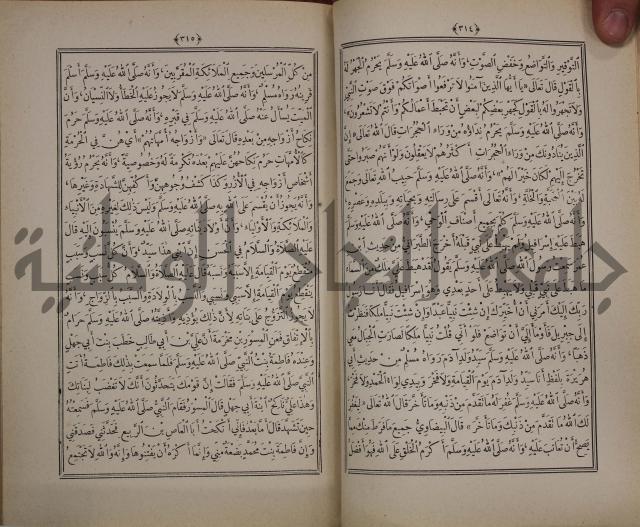 ﴿٣١٤﴾
التَّوْقِيرِ وَالتَّوَاضُعِ وَخَفْضِ الصَّوْتِ وَأَنَّهُ صَلَّى اللهُ عَلَيْهِ وَسَلَّمَ يَحْرُمُ الْجَهْرُ لَهُ
بِالْقَوْلِ قَالَ تَعَالَى «يَا أَيُّهَا الَّذِينَ آمَنُوا لَا تَرْفَعُوا أَصْوَاتَكُمْ فَوْقَ صَوْتِ النَّبِيِّ
وَلَا تَجْهَرُوا لَهُ بِالْقَوْلِ كَجَهْرِ بَعْضِكُمْ لِبَعْضٍ أَنْ تَحْبَطَ أَعْمَالُكُمْ وَأَنْتُمْ لَا تَشْعُرُونَ»
وَأَنَّهُ صَلَّى اللهُ عَلَيْهِ وَسَلَّمَ يَحْرُمُ نِدَاؤُهُ مِنْ وَرَاءِ الْحُجُرَاتِ قَالَ اللهُ تَعَالَى «إِنَّ
الَّذِينَ يُنَادُونَكَ مِنْ وَرَاءِ الْحُجُرَاتِ أَكْثَرُهُمْ لَا يَعْقِلُونَ وَلَوْ أَنَّهُمْ صَبَرُوا حَتَّى
تَخْرُجَ إِلَيْهِمْ لَكَانَ خَيْرًا لَهُمْ» وَأَنَّهُ صَلَّى اللهُ عَلَيْهِ وَسَلَّمَ حَبِيبُ اللهِ تَعَالَى وَجَمَعَ
لَهُ بَيْنَ الْمَحَبَّةِ وَالْخُلَّةِ وَأَنَّهُ تَعَالَى أَقْسَمَ عَلَى رِسَالَتِهِ وَبِحَيَاتِهِ وَبِبَلَدِهِ وَعَصْرِهِ
وَأَنَّهُ صَلَّى اللهُ عَلَيْهِ وَسَلَّمَ كُلِّمَ بِجَمِيعِ أَصْنَافِ الْوَحْيِ وَأَنَّهُ صَلَّى اللهُ عَلَيْهِ وَسَلَّمَ
هَبَطَ عَلَيْهِ إِسْرَافِيلُ وَلَمْ يَهْبِطْ عَلَى نَبِيٍّ قَبْلَهُ أَخْرَجَ الطَّبَرَانِيُّ مِنْ حَدِيثِ ابْنِ
عُمَرَ سَمِعْتُ رَسُولَ اللهِ صَلَّى اللهُ عَلَيْهِ وَسَلَّمَ يَقُولُ لَقَدْ هَبَطَ عَلَيَّ مَلَكٌ مِنَ السَّمَاءِ
مَا هَبَطَ عَلَى نَبِيٍّ قَبْلِي وَلَا يَهْبِطُ عَلَى أَحَدٍ بَعْدِي وَهُوَ إِسْرَافِيلُ فَقَالَ أَنَا رَسُولُ
رَبِّكَ إِلَيْكَ أَمَرَنِي أَنْ أُخْبِرَكَ إِنْ شِئْتَ نَبِيًّا عَبْدًا وَإِنْ شِئْتَ نَبِيًّا مَلِكًا فَنَظَرْتُ
إِلَى جِبْرِيلَ فَأَوْمَأَ إِلَيَّ أَنْ تَوَاضَعْ فَلَوْ أَنِّي قُلْتُ نَبِيًّا مَلِكًا لَصَارَتِ الْجِبَالُ مَعِي
ذَهَبًا وَأَنَّهُ صَلَّى اللهُ عَلَيْهِ وَسَلَّمَ سَيِّدُ وَلَدِ آدَمَ رَوَاهُ مُسْلِمٌ مِنْ حَدِيثِ أَبِي
هُرَيْرَةَ بِلَفْظِ أَنَا سَيِّدُ وَلَدِ آدَمَ يَوْمَ الْقِيَامَةِ وَلَا فَخْرَ وَبِيَدِي لِوَاءُ الْحَمْدِ وَلَا فَخْرَ
وَأَنَّهُ صَلَّى اللهُ عَلَيْهِ وَسَلَّمَ غُفِرَ لَهُ مَا تَقَدَّمَ مِنْ ذَنْبِهِ وَمَا تَأَخَّرَ قَالَ اللهُ تَعَالَى «لِيَغْفِرَ
لَكَ اللهُ مَا تَقَدَّمَ مِنْ ذَنْبِكَ وَمَا تَأَخَّرَ» قَالَ الْبَيْضَاوِيُّ جَمِيعُ مَا فَرَطَ مِنْكَ مِمَّا
يَصِحُّ أَنْ تُعَاتَبَ عَلَيْهِ وَأَنَّهُ صَلَّى اللهُ عَلَيْهِ وَسَلَّمَ أَكْرَمُ الْخَلْقِ عَلَى اللهِ فَهُوَ أَفْضَلُ
﴿٣١٥﴾
مِنْ كُلِّ الْمُرْسَلِينَ وَجَمِيعِ الْمَلَائِكَةِ الْمُقَرَّبِينَ وَأَنَّهُ صَلَّى اللهُ عَلَيْهِ وَسَلَّمَ أَسْلَمَ
قَرِينُهُ رَوَاهُ مُسْلِمٌ وَأَنَّهُ صَلَّى اللهُ عَلَيْهِ وَسَلَّمَ لَا يَجُوزُ عَلَيْهِ الْخَطَأُ وَلَا النِّسْيَانُ وَأَنَّ
الْمَيِّتَ يُسْأَلُ عَنْهُ صَلَّى اللهُ عَلَيْهِ وَسَلَّمَ فِي قَبْرِهِ وَأَنَّهُ صَلَّى اللهُ عَلَيْهِ وَسَلَّمَ حَرُمَ
نِكَاحُ أَزْوَاجِهِ مِنْ بَعْدِهِ قَالَ تَعَالَى «وَأَزْوَاجُهُ أُمَّهَاتُهُمْ» أَيْ هُنَّ فِي الْحُرْمَةِ
كَالْأُمَّهَاتِ حَرُمَ نِكَاحُهُنَّ عَلَيْهِمْ بَعْدَهُ تَكْرِمَةً لَهُ وَخُصُوصِيَّةً وَأَنَّهُ يَحْرُمُ رُؤْيَةُ
أَشْخَاصِ أَزْوَاجِهِ فِي الْأُزُرِ وَكَذَا كَشْفُ وُجُوهِهِنَّ وَأَكُفِّهِنَّ لِشَهَادَةٍ وَغَيْرِهَا
وَأَنَّهُ يَجُوزُ أَنْ يُقْسَمَ عَلَى اللهِ بِهِ صَلَّى اللهُ عَلَيْهِ وَسَلَّمَ وَلَيْسَ ذَلِكَ لِغَيْرِهِ مِنَ الْأَنْبِيَاءِ
وَالْمَلَائِكَةِ وَالْأَوْلِيَاءِ وَأَنَّ أَوْلَادَ بَنَاتِهِ صَلَّى اللهُ عَلَيْهِ وَسَلَّمَ يُنْسَبُونَ إِلَيْهِ قَالَ
عَلَيْهِ الصَّلَاةُ وَالسَّلَامُ فِي الْحَسَنِ إِنَّ ابْنِي هَذَا سَيِّدٌ وَأَنَّ كُلَّ نَسَبٍ وَسَبَبٍ
يَنْقَطِعُ يَوْمَ الْقِيَامَةِ إِلَّا سَبَبَهُ وَنَسَبَهُ قَالَ عَلَيْهِ الصَّلَاةُ وَالسَّلَامُ كُلُّ سَبَبٍ وَنَسَبٍ
يَنْقَطِعُ يَوْمَ الْقِيَامَةِ إِلَّا سَبَبِي وَنَسَبِي وَالنَّسَبُ بِالْوِلَادَةِ وَالسَّبَبُ بِالزَّوَاجِ وَأَنَّهُ
لَا يَجُوزُ التَّزَوُّجُ عَلَى بَنَاتِهِ لِأَنَّ ذَلِكَ يُؤْذِيهِ وَأَذِيَّتُهُ صَلَّى اللهُ عَلَيْهِ وَسَلَّمَ حَرَامٌ
بِالِاتِّفَاقِ فَعَنِ الْمِسْوَرِ بْنِ مَخْرَمَةَ أَنَّ عَلِيَّ بْنَ أَبِي طَالِبٍ خَطَبَ بِنْتَ أَبِي جَهْلٍ
وَعِنْدَهُ فَاطِمَةُ بِنْتُ النَّبِيِّ صَلَّى اللهُ عَلَيْهِ وَسَلَّمَ فَلَمَّا سَمِعَتْ بِذَلِكَ فَاطِمَةُ أَتَتِ
النَّبِيَّ صَلَّى اللهُ عَلَيْهِ وَسَلَّمَ فَقَالَتْ إِنَّ قَوْمَكَ يَتَحَدَّثُونَ أَنَّكَ لَا تَغْضَبُ لِبَنَاتِكَ
وَهَذَا عَلِيٌّ نَاكِحٌ ابْنَةَ أَبِي جَهْلٍ قَالَ الْمِسْوَرُ فَقَامَ النَّبِيُّ صَلَّى اللهُ عَلَيْهِ وَسَلَّمَ فَسَمِعْتُهُ
حِينَ تَشَهَّدَ قَالَ أَمَّا بَعْدُ فَإِنِّي أَنْكَحْتُ أَبَا الْعَاصِ بْنَ الرَّبِيعِ فَحَدَّثَنِي فَصَدَقَنِي
وَإِنَّ فَاطِمَةَ بِنْتَ مُحَمَّدٍ بَضْعَةٌ مِنِّي وَإِنَّمَا أَكْرَهُ أَنْ يَفْتِنُوهَا وَإِنَّهُ وَاللهِ لَا تَجْتَمِعُ
جامعة النجاح الوطنية